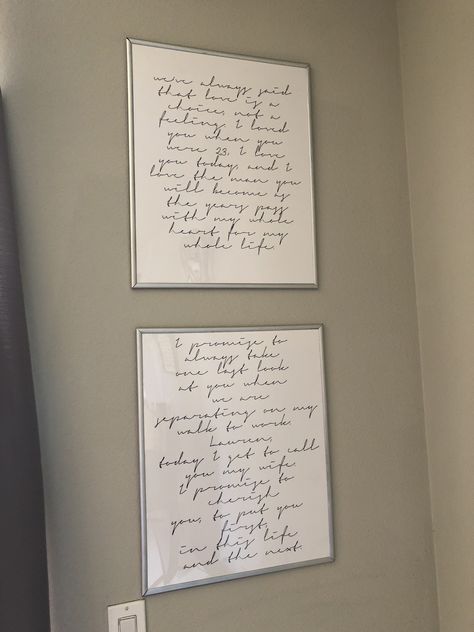 we've always said
that love is a
choice, not a
feeling. I loved
you when you
were 23, I love
you today, and I
love the man you
will become as
the years pass
with my whole
heart for my
whole life.
I promise to
always take
one last look
at you when
we are
separating on my
walk to work.
Lauren,
today I get to call
you my wife.
I promise to
cherish
you, to put you
first,
in this life
and the next.